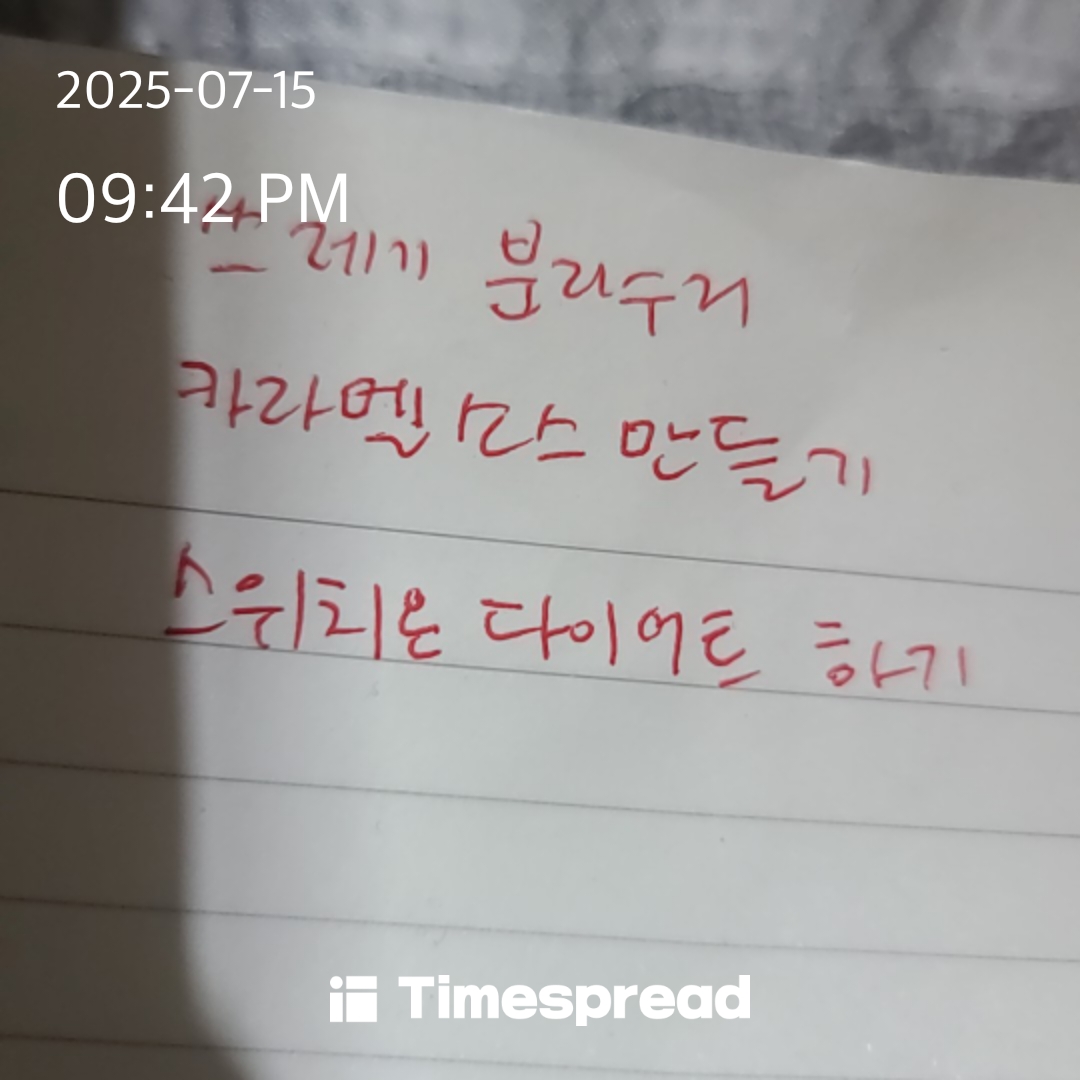 2025-07-15
09:42 PM
쓰레기 분리수거
카라멜 소스 만들기
스위치온 다이어트 하기
Timespread